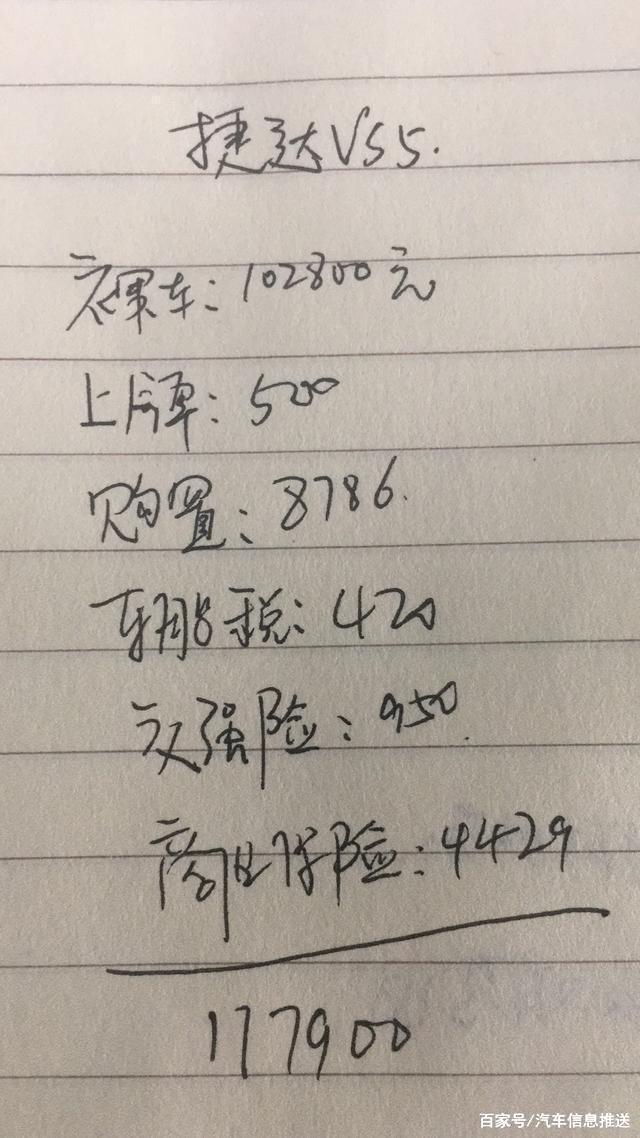 捷达VS5.
裸车:102800元
上牌:500
购置:8786.
车船税:420
交强险:950
商业保险:4429
117900
百家号/汽车信息推送